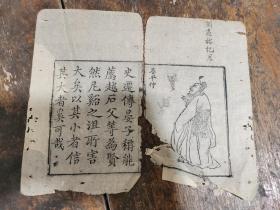 晏平仲
史遷傳晏子稱能
薦越石父等為賢
然尼谿之沮所害
大矣以其小者信
其大者奚可哉